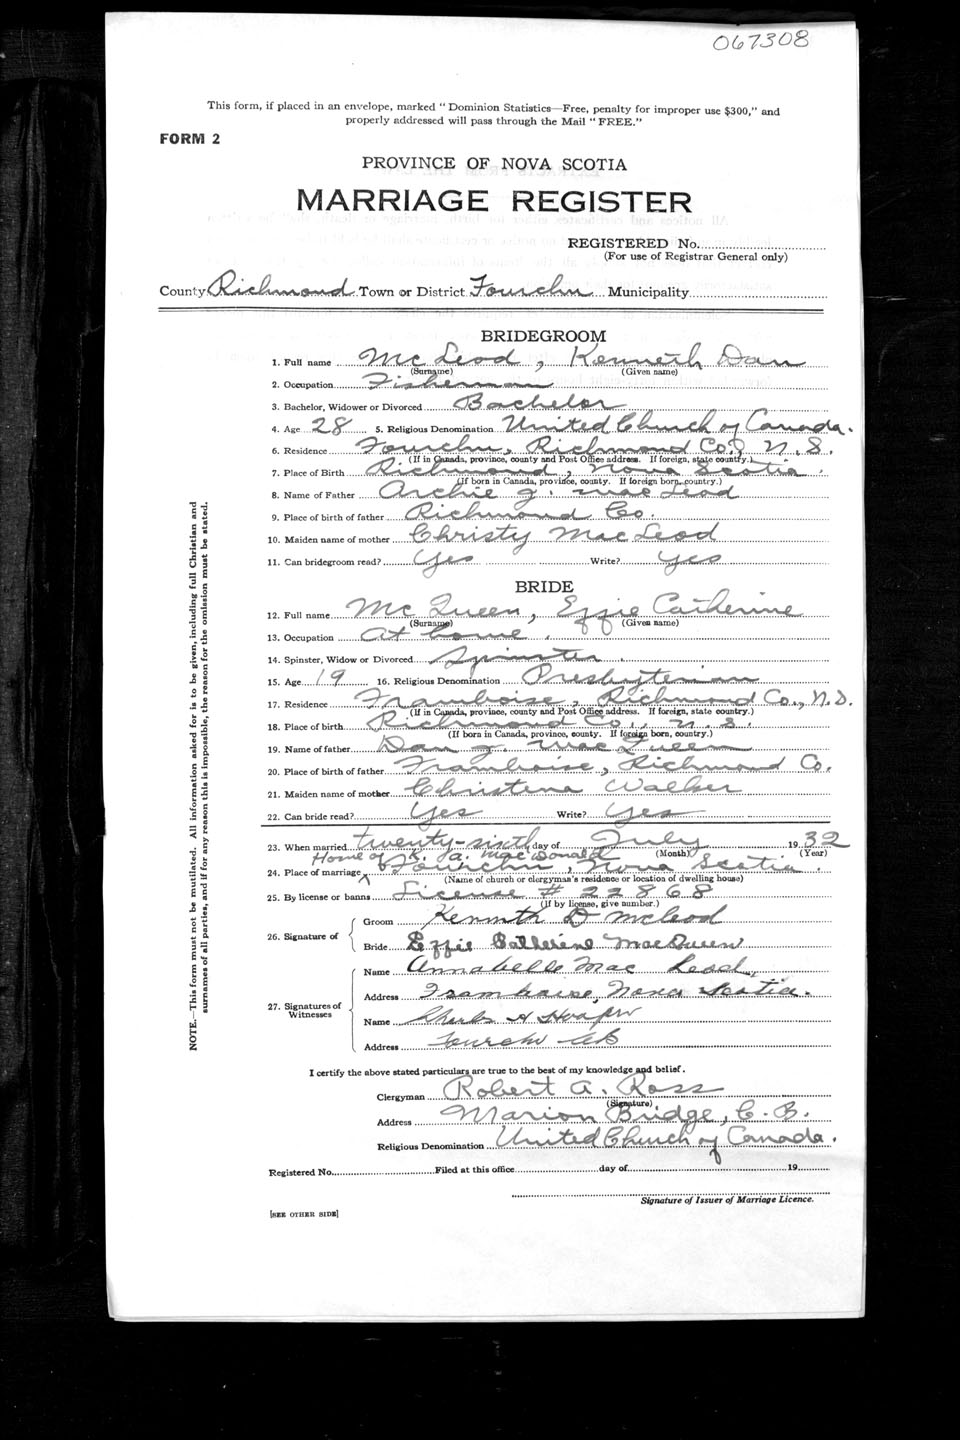 067308
This form, if placed in an envelope, marked "Dominion Statistics—Free, penalty for improper use $300," and
properly addressed will pass through the Mail "FREE."
FORM 2
PROVINCE OF NOVA SCOTIA
MARRIAGE REGISTER
REGISTERED No.
(For use of Registrar General only)
County Richmond Town or District Fourchu Municipality
BRIDEGROOM
1. Full name McLeod, Kenneth Dan
(Surname) (Given name)
2. Occupation Fisherman
3. Bachelor, Widower or Divorced Bachelor
4. Age 28 5. Religious Denomination United Church of Canada.
6. Residence Fourchu, Richmond Co., N.S.
(If in Canada, province, county and Post Office address. If foreign, state country.)
7. Place of Birth Richmond, Nova Scotia.
(If born in Canada, province, county. If foreign born, country.)
8. Name of Father Archie J. MacLeod
9. Place of birth of father Richmond Co.
10. Maiden name of mother Christy MacLeod
11. Can bridegroom read? Yes Write? Yes
BRIDE
12. Full name McQueen, Effie Catherine
(Surname) (Given name)
13. Occupation At home.
14. Spinster, Widow or Divorced Spinster.
15. Age 19 16. Religious Denomination Presbyterian
17. Residence Framboise, Richmond Co., N.S.
(If in Canada, province, county and Post Office address. If foreign, state country.)
18. Place of birth Richmond Co., N.S.
(If born in Canada, province, county. If foreign born, country.)
19. Name of father Dan J. MacQueen
20. Place of birth of father Framboise, Richmond Co.
21. Maiden name of mother Christena Walker
22. Can bride read? Yes Write? Yes
23. When married twenty-sixth day of July 1932
(Month) (Year)
Home of A. MacDonald
24. Place of marriage Fourchu, Nova Scotia.
(Name of church or clergyman's residence or location of dwelling house)
25. By license or banns License # 22868
(If by license, give number.)
26. Signature of Groom Kennith D McLeod
Bride Effie Catherine MacQueen
27. Signatures of Witnesses Name Annabelle MacLeod,
Address Framboise, Nova Scotia.
Name Charles A
Address Fourchu CB
I certify the above stated particulars are true to the best of my knowledge and belief.
Clergyman Robert A. Ross
(Signature)
Address Marion Bridge, C.B.
Religious Denomination United Church of Canada.
Registered No. Filed at this office day of 19
Signature of Issuer of Marriage Licence.
[SEE OTHER SIDE]
NOTE.—This form must not be mutilated. All information asked for is to be given, including full Christian and
surnames of all parties, and if for any reason this is impossible, the reason for the omission must be stated.